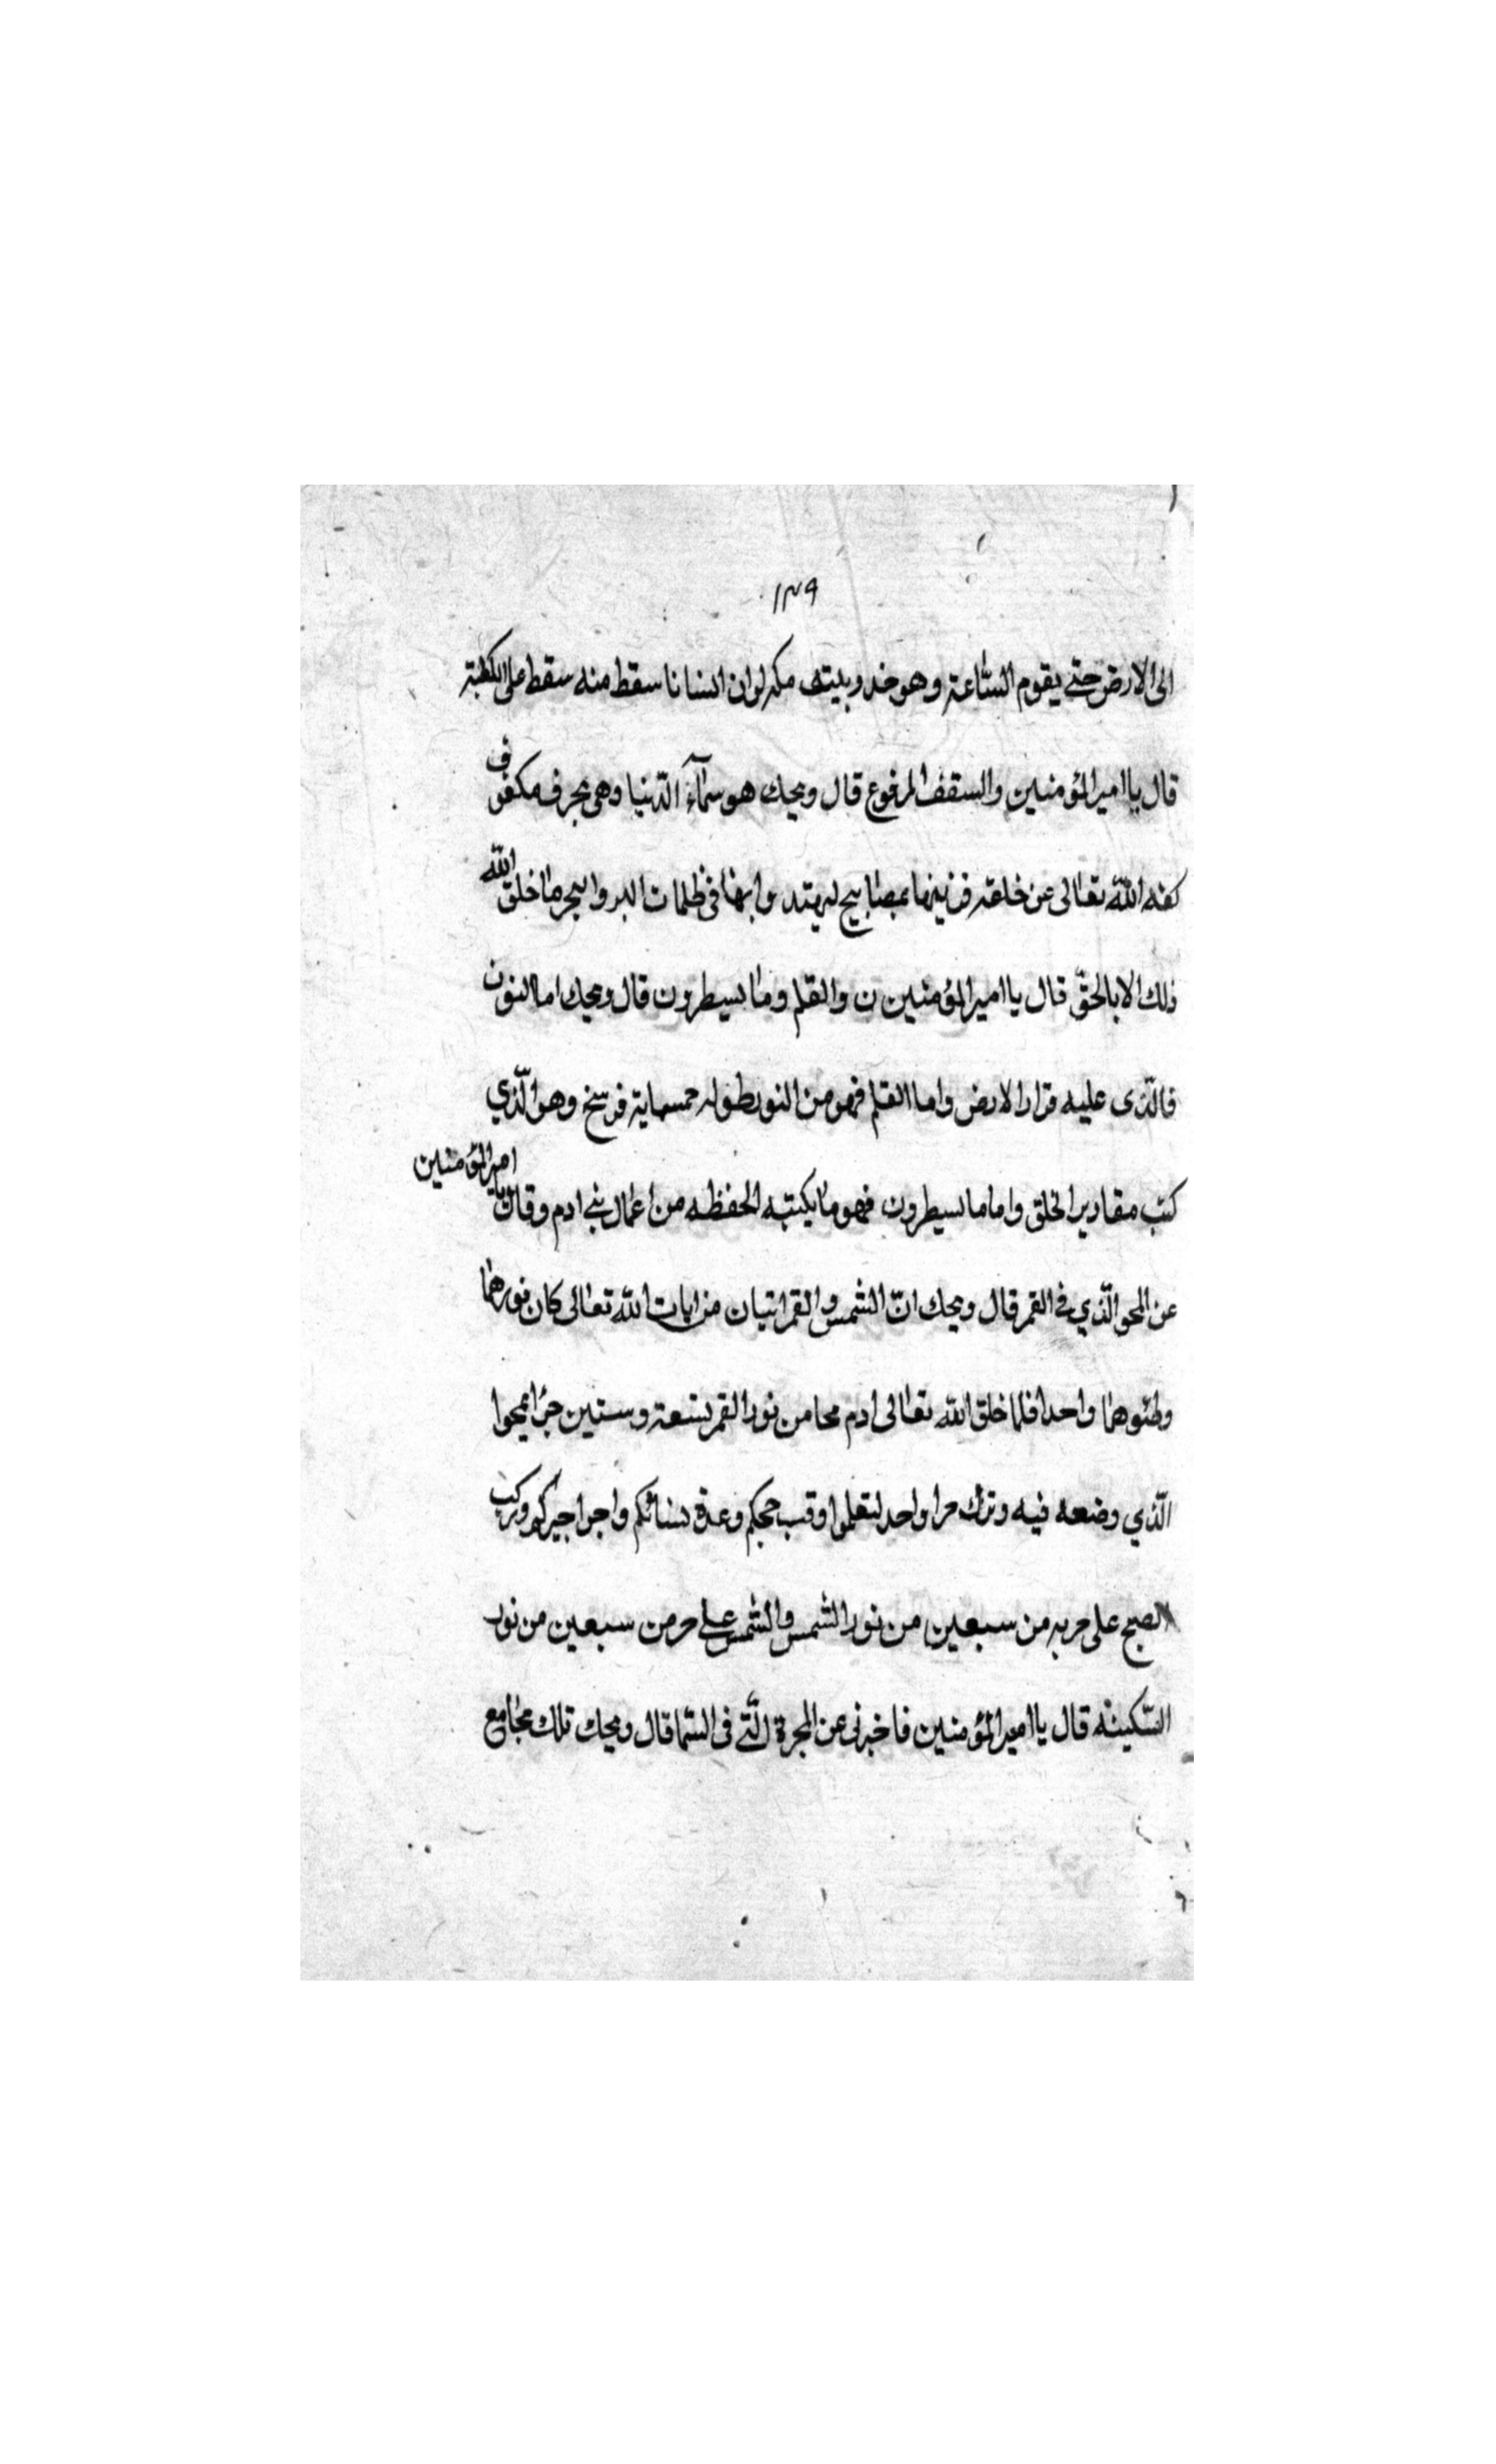 ١٣٩
الى الارض حتى يقوم الساعة وهو خد وبيته مكه لو ان انسانا سقط منه سقط على الكعبة
قال يا امير المؤمنين والسقف المرفوع قال ويحك هو سمآء الدّنيا وهى بحر مكفوف
كفه اللّه تعالى عن خلقه فزينها بمصابيح ليهتدوا بها فى ظلمات البر والبحر ما خلق اللّه
ذلك الا بالحقّ قال يا امير المؤمنين ن والقلم وما يسطرون قال ويحك اما النون
فالّذى عليه قرار الارض واما القلم فهو من النور طوله خمسماية فرسخ وهو الّذي
كتب مقادير الخلق واما ما يسطرون فهو ما يكتبه الحفظه من اعمال بني ادم وقال يا امير المؤمنين
عن المحو الّذي في القمر قال ويحك انّ الشمس والقمر ايتيان من ايات اللّه تعالى كان نورهما
وضئوهما واحدا فلما خلق اللّه تعالى ادم محا من نور القمر تسعة وستين جزا فمحوا
الّذي وضعه فيه وترك جزا واحد لتعلموا وقت حجكم وعدة نسائكم واجر اجيركم وركب
الصبح على جزء من سبعين من نور الشمس والشمس على جز من سبعين من نور
السّكينة قال يا امير المؤمنين فاخبرنى عن المجرة الّتي فى السّما قال ويحك تلك مجامع